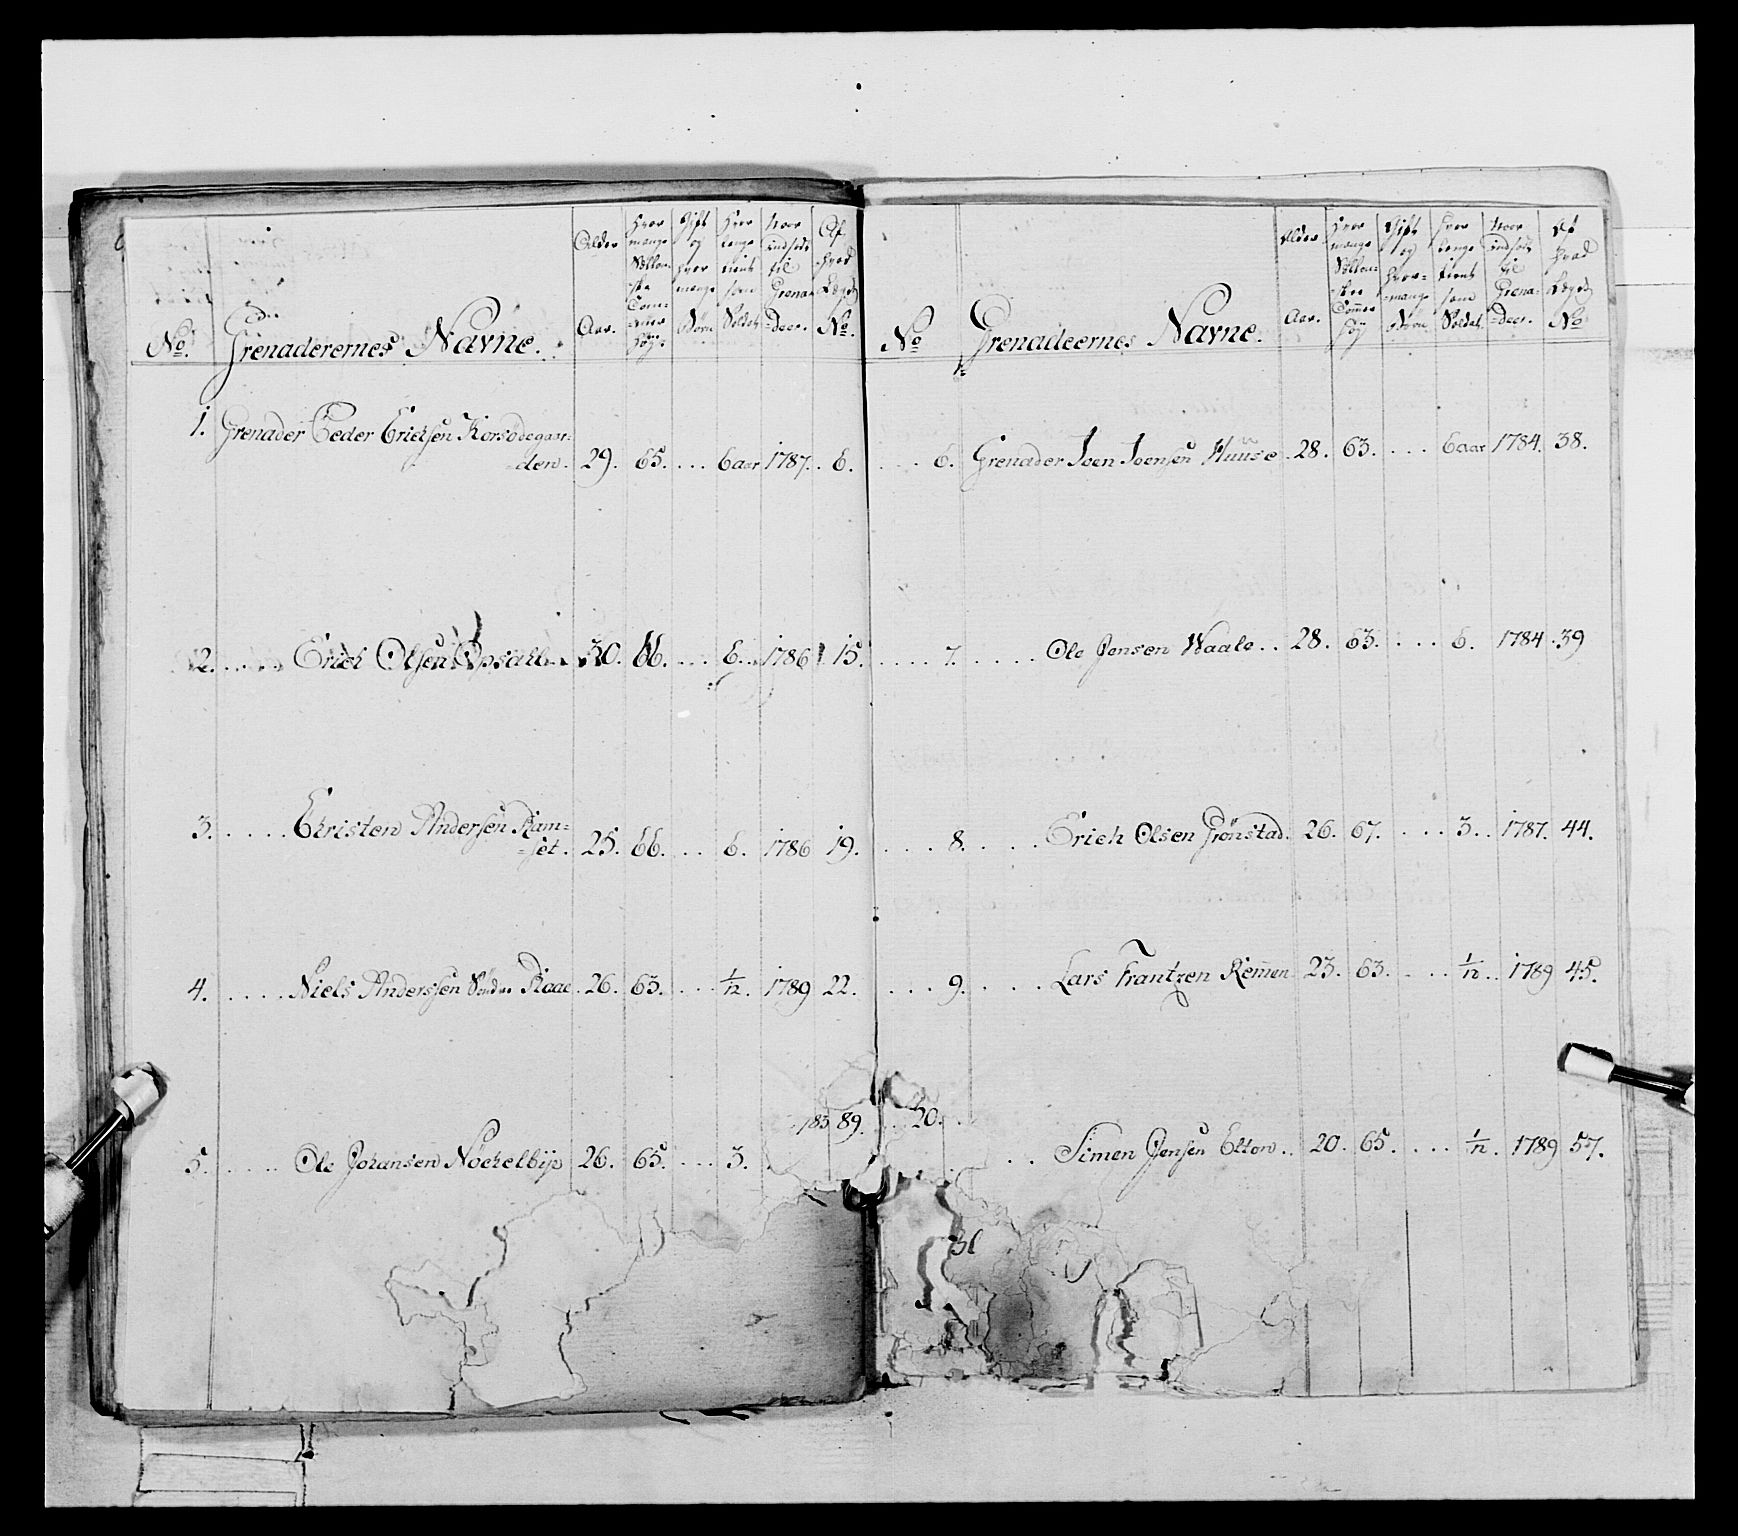 No. Grenaderernes Navne. Alder Aar. Hver mange Sollan- ske Tom- mer Høy. Gift og hvor mange Børn Hvor lenge tient som Soldat Naar indsadt til Grena- deer. Af hvad Lægd No.
1. Grenader Peder Erichsen Korsødegaar-
den. 29. 65. ... 6 aar 1787. 6.
2. .... Erich Olsen Opsahl. 30. 66. ... 6. 1786 15.
3. .... Christen Andersen Ram-
set. 25. 66. ... 6. 1786 19.
4. .... Niels Anderssen Søndre Raae. 26. 63. ... 1/12. 1789 22.
89.
5. .... Ole Johansen Nochelbÿe 26. 65. ... 3.
No Grenadeernes Navne. Alder Aar. Hvor mange Sollan- ske Tommer Høy Gift og hvor- mange Børn Hvor lenge tient som Soldat Naar indsadt til Grena- deer. Af hvad Lægd No
6. Grenader Joen Joensen Huuse. 28. 63. ... 6 aar 1784. 38.
7. .... Ole Jensen Waale.. 28. 63. ... 6. 1784. 39
8. .... Erich Olsen Grönstad. 26. 67. ... 3.. 1787. 44.
9. .... Lars Frantzen Remmen 23. 63. ... 1/12.. 1789 45.
20.
.. Simen Jensen Elton.. 20. 65. ... 1/12. 1789 57.